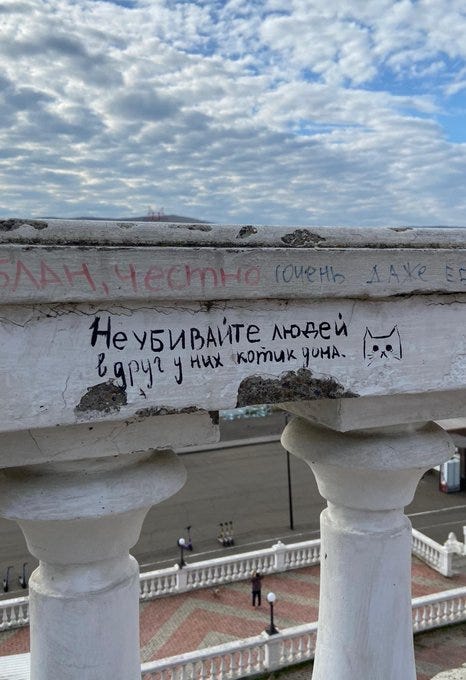 БЛАН, честно
очень даже
Не убивайте людей
вдруг у них котик дома.